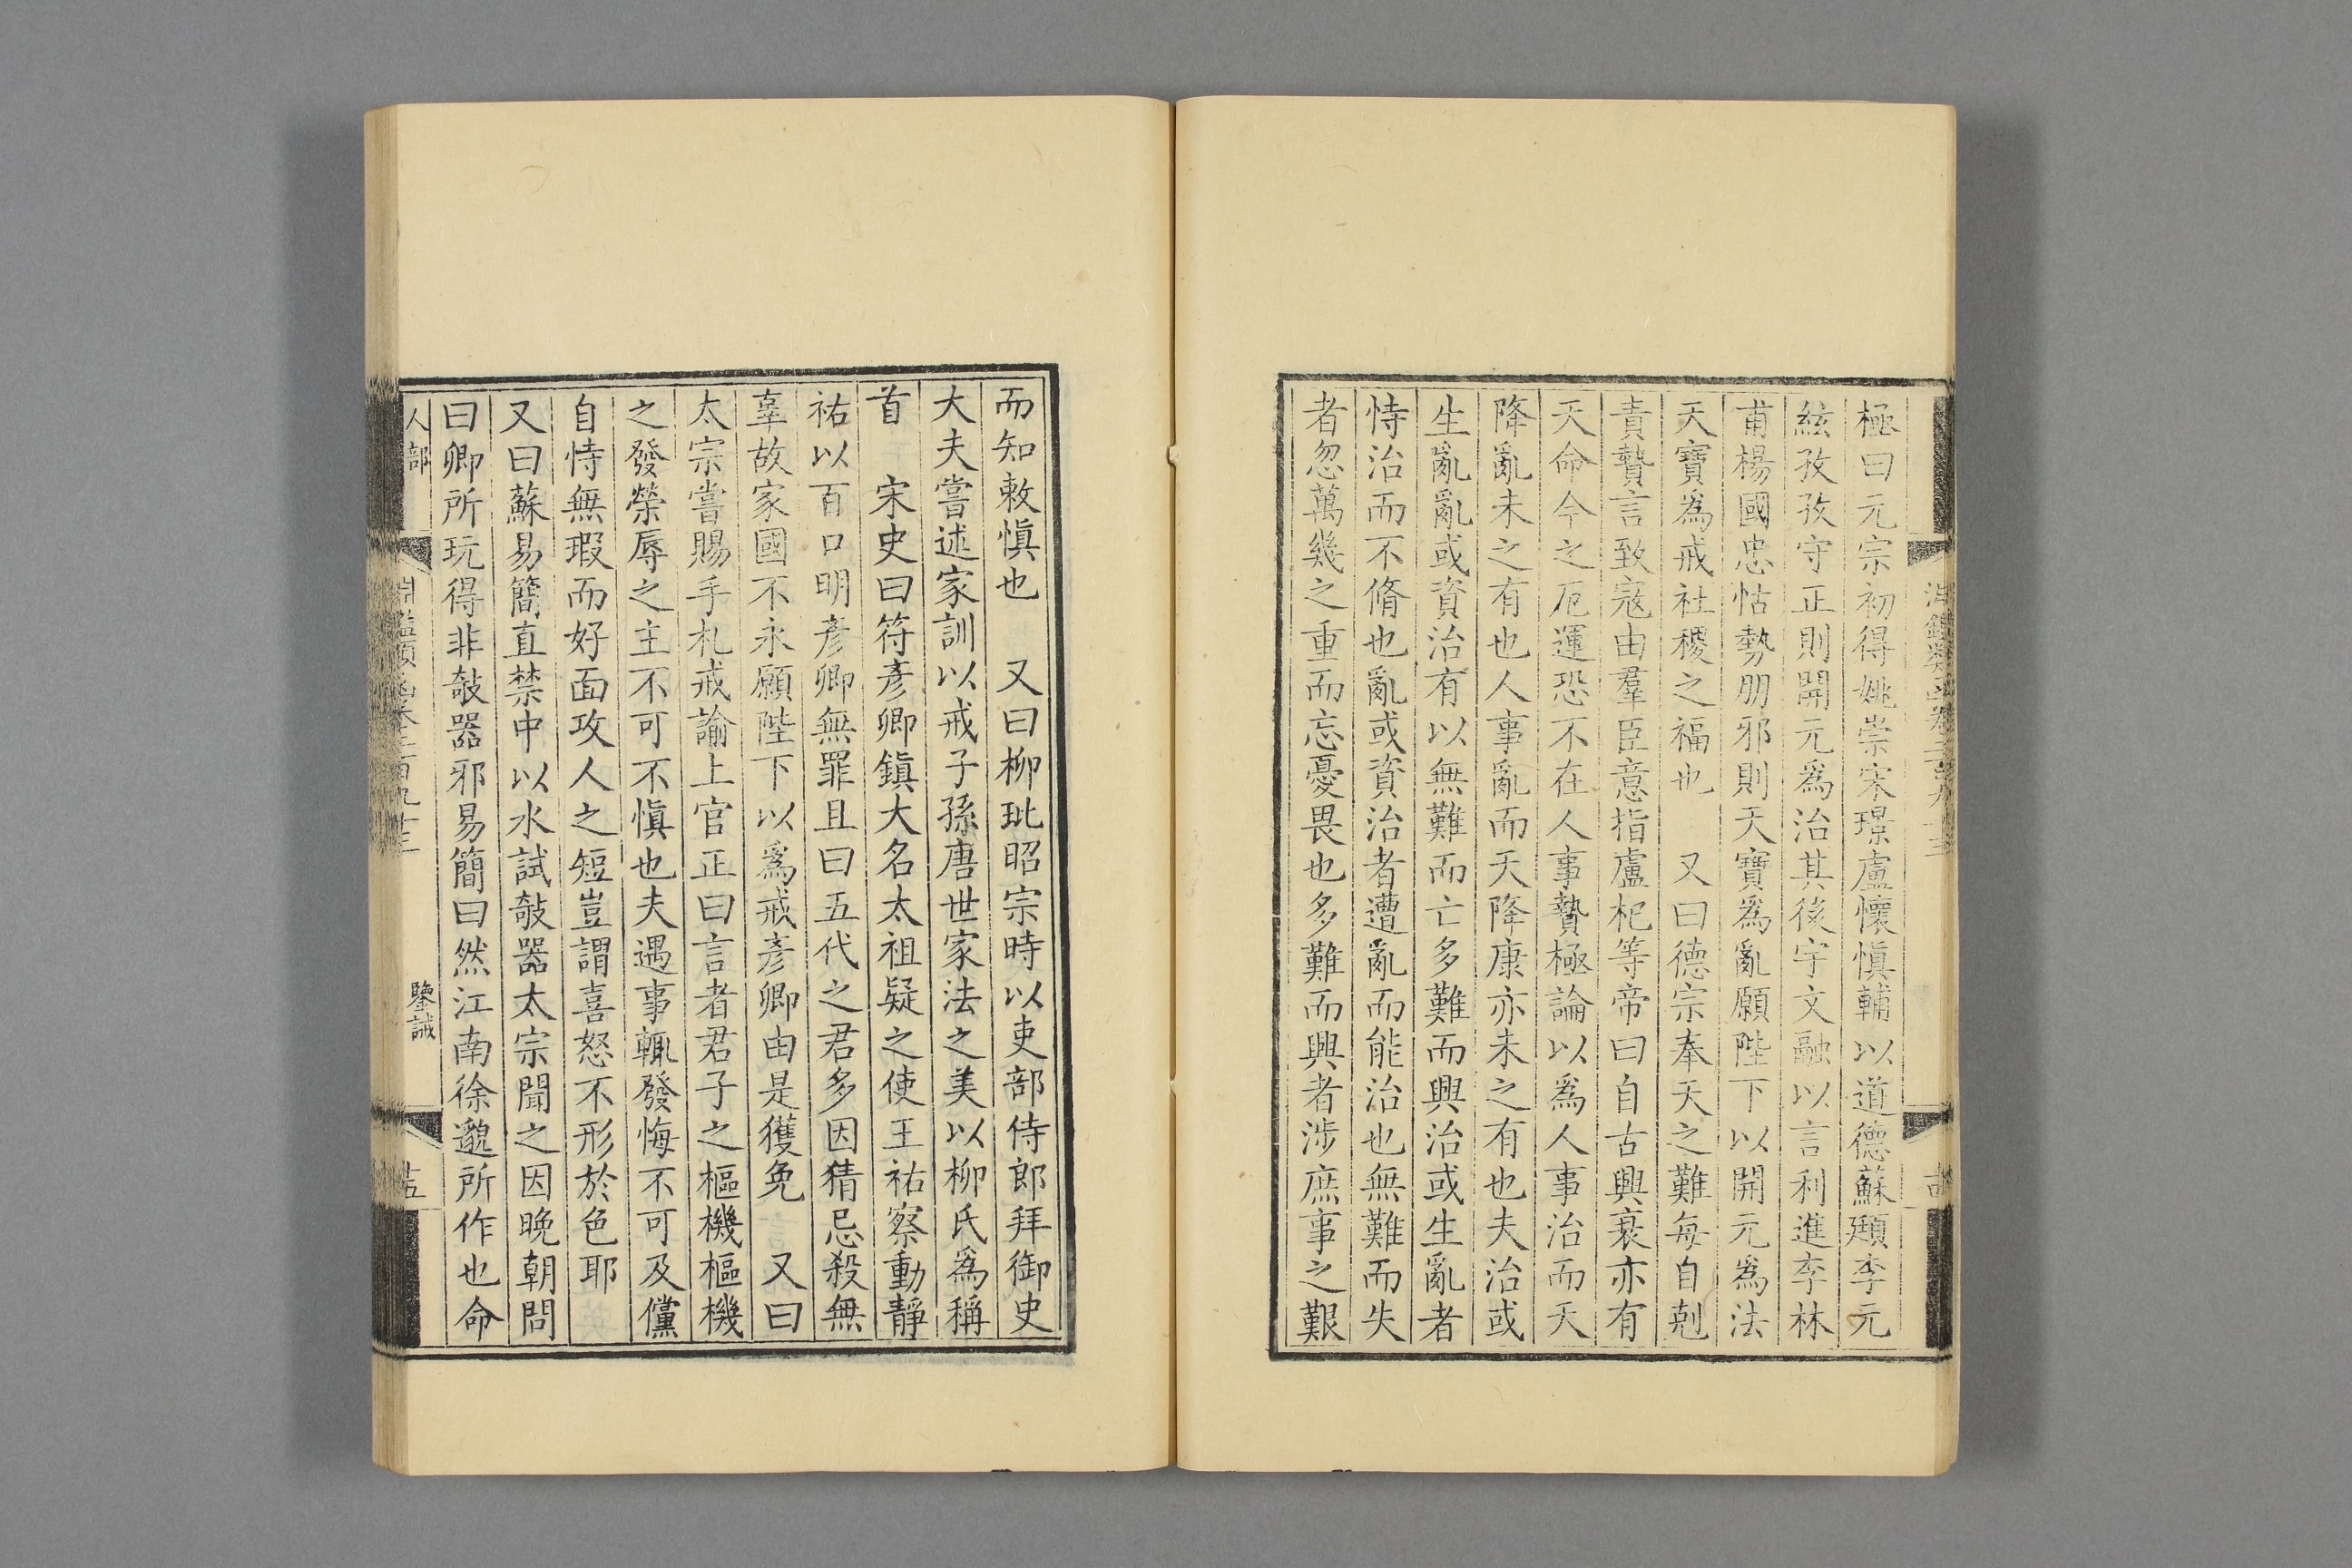 極曰元宗初得姚崇宋璟盧懷愼輔以道德蘇頲李元
絃孜孜守正則開元爲治其後宇文融以言利進李林
甫楊國忠怙勢朋邪則天寶爲亂願陛下以開元爲法
天寶爲戒社稷之福也　又曰德宗奉天之難每自剋
責贄言致寇由羣臣意指盧杞等帝曰自古興衰亦有
天命今之厄運恐不在人事贄極論以爲人事治而天
降亂未之有也人事亂而天降康亦未之有也夫治或
生亂亂或資治有以無難而亡多難而興治或生亂者
恃治而不脩也亂或資治者遭亂而能治也無難而失
者忽萬幾之重而忘憂畏也多難而興者涉庶事之艱
而知敕愼也　又曰柳玭昭宗時以吏部侍郎拜御史
大夫嘗述家訓以戒子孫唐世家法之美以柳氏爲稱
首　宋史曰符彥卿鎭大名太祖疑之使王祐察動靜
祐以百口明彥卿無罪且曰五代之君多因猜忌殺無
辜故家國不永願陛下以爲戒彥卿由是獲免　又曰
太宗嘗賜手札戒諭上官正曰言者君子之樞機樞機
之發榮辱之主不可不愼也夫遇事輒發悔不可及儻
自恃無瑕而好面攻人之短豈謂喜怒不形於色耶
又曰蘇易簡直禁中以水試敧器太宗聞之因晚朝問
曰卿所玩得非敧器邪易簡曰然江南徐邈所作也命
人部　淵鑑類函卷三百九十三　鑒誡　十五